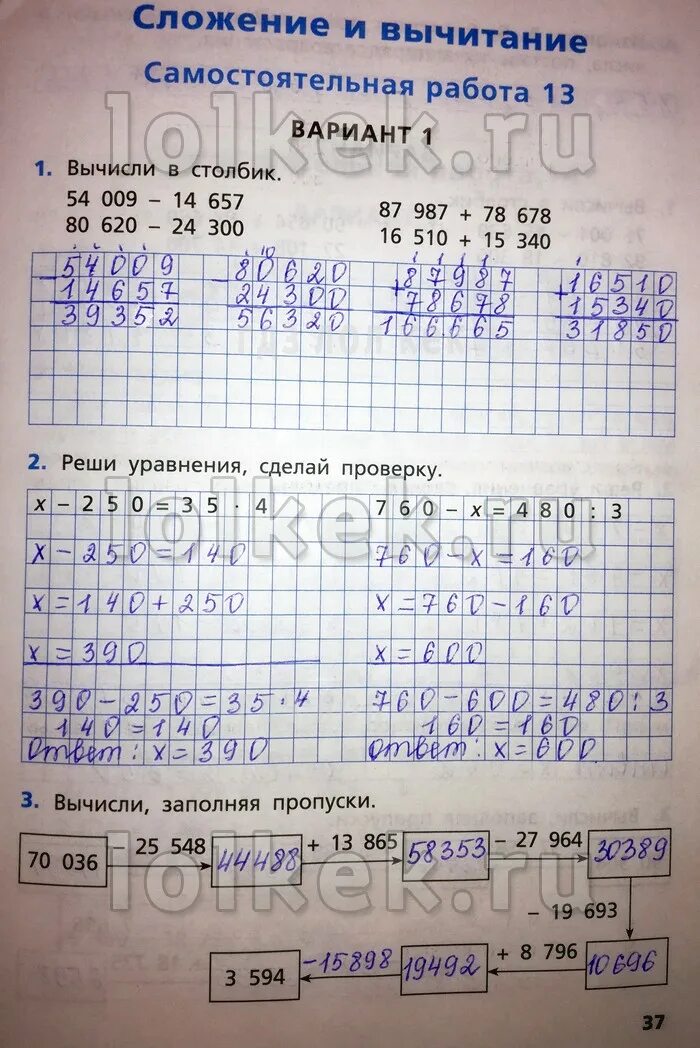 Сложение и вычитание
Самостоятельная работа 13
ВАРИАНТ 1
1. Вычисли в столбик.
54 009 − 14 657
87 987 + 78 678
80 620 − 24 300
16 510 + 15 340
10
1 1 1 1
1
− 54009 − 80620 + 87987 + 16510
14657 24300 78678 15340
39352 56320 166665 31850
2. Реши уравнения, сделай проверку.
x − 250 = 35 · 4
760 − x = 480 : 3
x − 250 = 140
760 − x = 160
x = 140 + 250
x = 760 − 160
x = 390
x = 600
390 − 250 = 35 · 4
760 − 600 = 480 : 3
140 = 140
160 = 160
Ответ: x = 390
Ответ: x = 600
3. Вычисли, заполняя пропуски.
70 036 − 25 548 44488 + 13 865 58353 − 27 964 30389
− 19 693
3 594 −15898 19492 + 8 796 10696
37
lolkek.ru
lolkek.ru
lolkek.ru